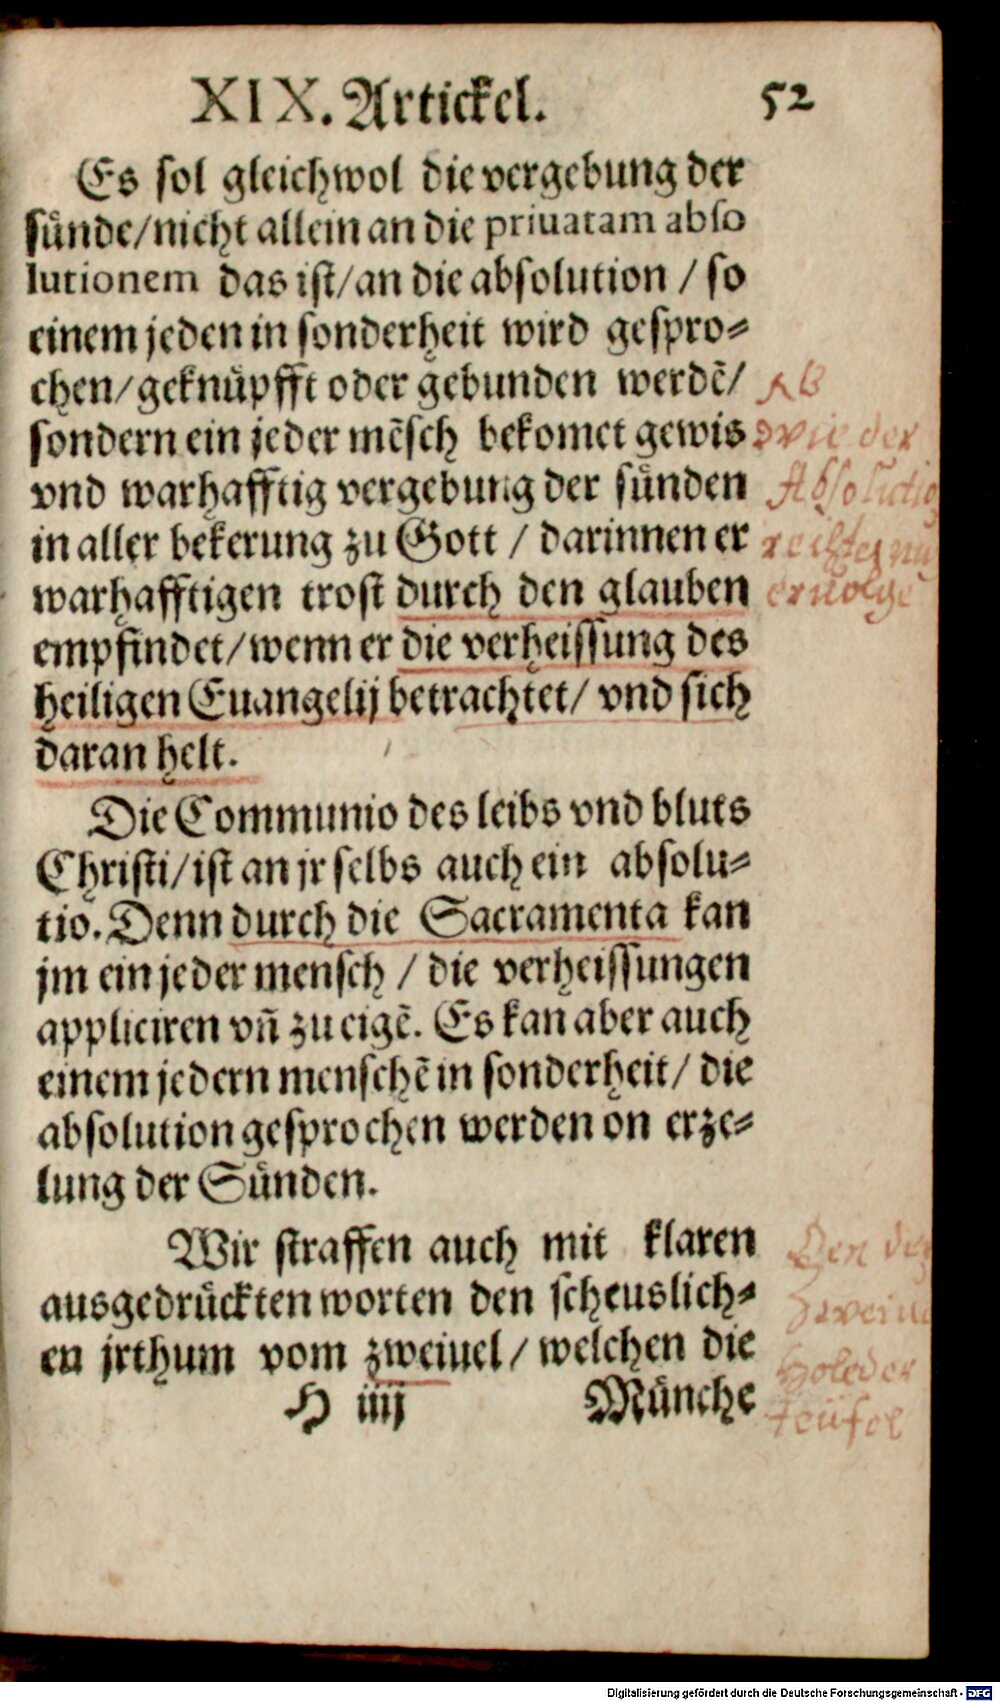 XIX. Artickel. 52
Es sol gleichwol die vergebung der
sünde/nicht allein an die priuatam abso
lutionem das ist/an die absolution / so
einem jeden in sonderheit wird gespro-
chen/geknüpfft oder gebunden werdẽ/
sondern ein jeder mẽsch bekomet gewis
vnd warhafftig vergebung der sünden
in aller bekerung zu Gott / darinnen er
warhafftigen trost durch den glauben
empfindet/wenn er die verheissung des
heiligen Euangelij betrachtet/ vnd sich
daran helt.
Die Communio des leibs vnd bluts
Christi/ist an jr selbs auch ein absolu-
tio. Denn durch die Sacramenta kan
jm ein jeder mensch / die verheissungen
appliciren vñ zu eigẽ. Es kan aber auch
einem jedern menschẽ in sonderheit/ die
absolution gesprochen werden on erze-
lung der Sünden.
Wir straffen auch mit klaren
ausgedrückten worten den scheuslich-
en jrthum vom zweiuel/ welchen die
H iiij Münche
NB
wie der
Absolutio
ervolge
Den
Holeder
teüfel
Digitalisierung gefördert durch die Deutsche Forschungsgemeinschaft - DFG